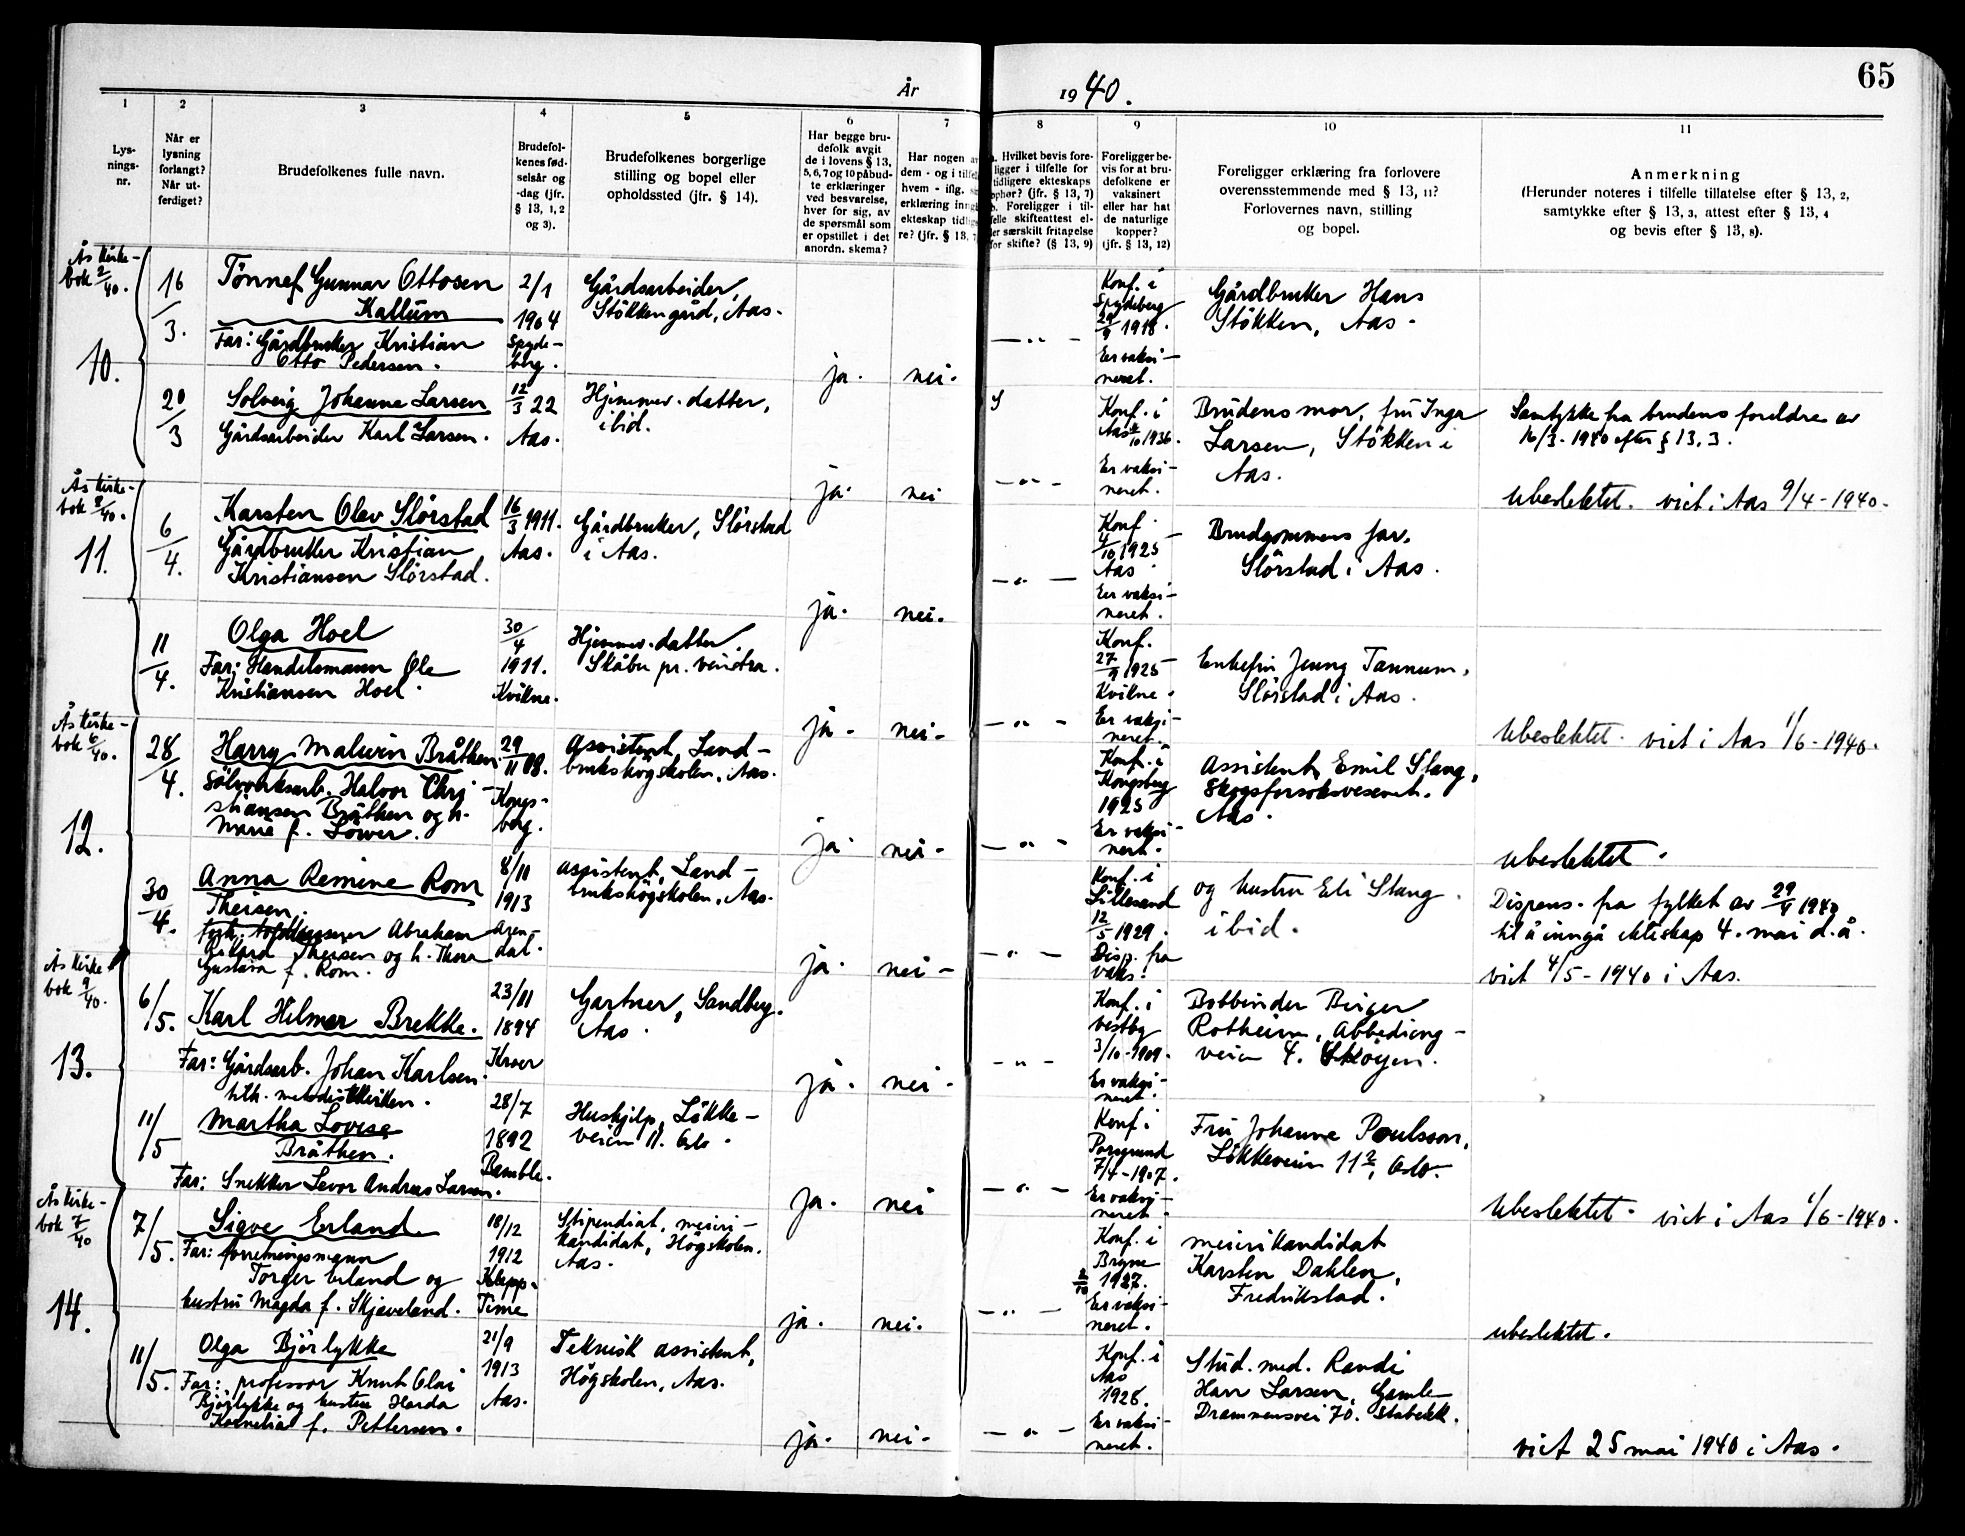 65
År 1940.
1
Lys-
nings-
nr.
2
Når er
lysning
forlangt?
Når ut-
ferdiget?
3
Brudefolkenes fulle navn.
4
Brudefol-
kenes fød-
selsår og
-dag (jfr.
§ 13, 1, 2
og 3).
5
Brudefolkenes borgerlige
stilling og bopel eller
opholdssted (jfr. § 14).
6
Har begge bru-
defolk avgit
de i lovens § 13,
5, 6, 7 og 10 påbud-
te erklæringer
ved besvarelse,
hver for sig, av
de spørsmål som
er opstillet i det
anordn. skema?
7
Har nogen av
dem - og i tilfelle
hvem - iflg.
erklæring inngått
ekteskap tidlige-
re? (jfr. § 13, 7
8
a. Hvilket bevis fore-
ligger i tilfelle for
tidligere ekteskaps
ophør? (jfr. § 13, 7)
b. Foreligger i til-
felle skifteattest el-
ler særskilt fritagelse
for skifte? (§ 13, 9)
9
Foreligger be-
vis for at bru-
defolkene er
vaksinert
eller har hat
de naturlige
kopper?
(jfr. § 13, 12)
10
Foreligger erklæring fra forlovere
overensstemmende med § 13, 11?
Forlovernes navn, stilling
og bopel.
11
Anmerkning
(Herunder noteres i tilfelle tillatelse efter § 13, 2,
samtykke efter § 13, 3, attest efter § 13, 4
og bevis efter § 13, 8).
Ås Kirke-
bok 2/40.
10.
16/3.
Tønnef Gunnar Ottosen
Kallum
Far: Gårdbruker Kristian
Otto Pedersen.
2/1
1904
Spyde-
berg.
Gårdsarbeider,
Støkken gård, Aas.
ja.
nei.
— " —
Konf. i
Spydeberg
29/9 1918.
Er vaksi-
neret.
Gårdbruker Hans
Støkken, Aas.
20/3
Solveig Johanne Larsen
Gårdsarbeider Karl Larsen.
12/3 22
Aas.
Hjemmev. datter,
ibid.
ja.
nei
— " —
Konf. i
Aas 4/10 1936.
Er vaksi-
neret.
Brudens mor, fru Inga
Larsen, Støkken i
Aas.
Samtykke fra brudens foreldre av
16/3-1940 efter § 13, 3.
Ubeslektet. viet i Aas 9/4-1940.
Ås Kirke-
bok 8/40.
11.
6/4.
Karsten Olav Slørstad
Gårdbruker Kristian
Kristiansen Slørstad.
16/3 1911.
Aas.
Gårdbruker, Slørstad
i Aas.
ja.
nei.
— " —
Konf.
4/10 1925
Aas
Er vaksi-
neret.
Brudgommens far,
Slørstad i Aas.
11/4.
Olga Hoel
Far: Handelsmann Ole
Kristiansen Hoel.
30/4
1911.
Kvikne.
Hjemmev. datter,
Skåbu pr. Vinstra.
ja.
nei.
— " —
Konf.
27/9 1925
Kvikne.
Er vaksi-
neret.
Enkefru Jenny Tannum,
Slørstad i Aas.
Ubeslektet. viet i Aas 1/6-1940.
Ås Kirke-
bok 6/40.
12.
28/4.
Harry Malurin Bråthen
Sølvverksarb. Halvor Chri-
stiansen Bråthen og h.
Marie f. Löwer.
29/11 08.
Kongs-
berg.
Assistent, Land-
brukshøgskolen, Aas.
ja.
nei.
— " —
Konf. i
Kongsberg
1923
Er vaksi-
nert.
Assistent Emil Stang,
Skogsforsøksvesenet.
Aas.
Ubeslektet.
30/4.
Anna Remine Rom
Theisen.
Abraham
Rikard Theisen og h. Thora
Gustava f. Rom.
8/11
1913
Aren-
dal.
Assistent, Land-
brukshøgskolen, Aas.
ja.
nei.
— " —
Konf. i
Lillesand
12/5 1929.
Disp. fra
vaks.
og hustru Eli Stang.
ibid.
Dispens. fra fylket av 29/4 1940
til å inngå ekteskap 4. mai d.å.
viet 4/5-1940 i Aas.
Ås Kirke-
bok 9/40.
13.
6/5.
Karl Hilmar Brekke.
Far: Gårdsarb. Johan Karlsen.
tilh. metodistkirken.
23/11
1894
Kroer
Gartner, Sandberg.
Aas.
ja.
nei.
— " —
Konf. i
Vestby
3/10-1909.
Er vaksi-
neret.
Bokbinder Birger
Rotheim, Abbedieng-
veien 4. Skøyen.
11/5
Martha Lovise
Bråthen.
Far: Snekker Levor Andreas Larsen.
28/7
1892
Bamble.
Hushjelp, Løkke-
veien 11. Oslo.
ja.
nei
— " —
Konf. i
Porsgrund
7/4-1907.
Er vaksi-
neret.
Fru Johanne Poulsson,
Løkkeveien 11², Oslo.
Ubeslektet. viet i Aas 1/6-1940.
Ås Kirke-
bok 7/40
14.
7/5.
Sigve Erland
Far: forretningsmann
Torger Erland og
hustru Magda f. Skjæveland.
18/12
1912
Klepp-
Time
Stipendiat, meieri-
kandidat, Høgskolen,
Aas.
ja.
nei.
— " —
Konf. i
Bryne
2/10 1927.
Er vaksi-
neret.
Meierikandidat
Karsten Dahlen,
Fredrikstad.
Ubeslektet.
11/5.
Olga Bjørlykke
Far: professor Knut Olai
Bjørlykke og hustru Harda
Kornelia f. Pettersen.
21/9
1913
Aas.
Teknisk assistent,
Høgskolen, Aas.
ja.
nei.
— " —
Konf. i
Aas
1928.
Er vaksi-
neret.
Stud. med. Randi
Harr Larsen, Gamle
Drammensvei 70. Stabekk.
viet 25 mai 1940 i Aas.